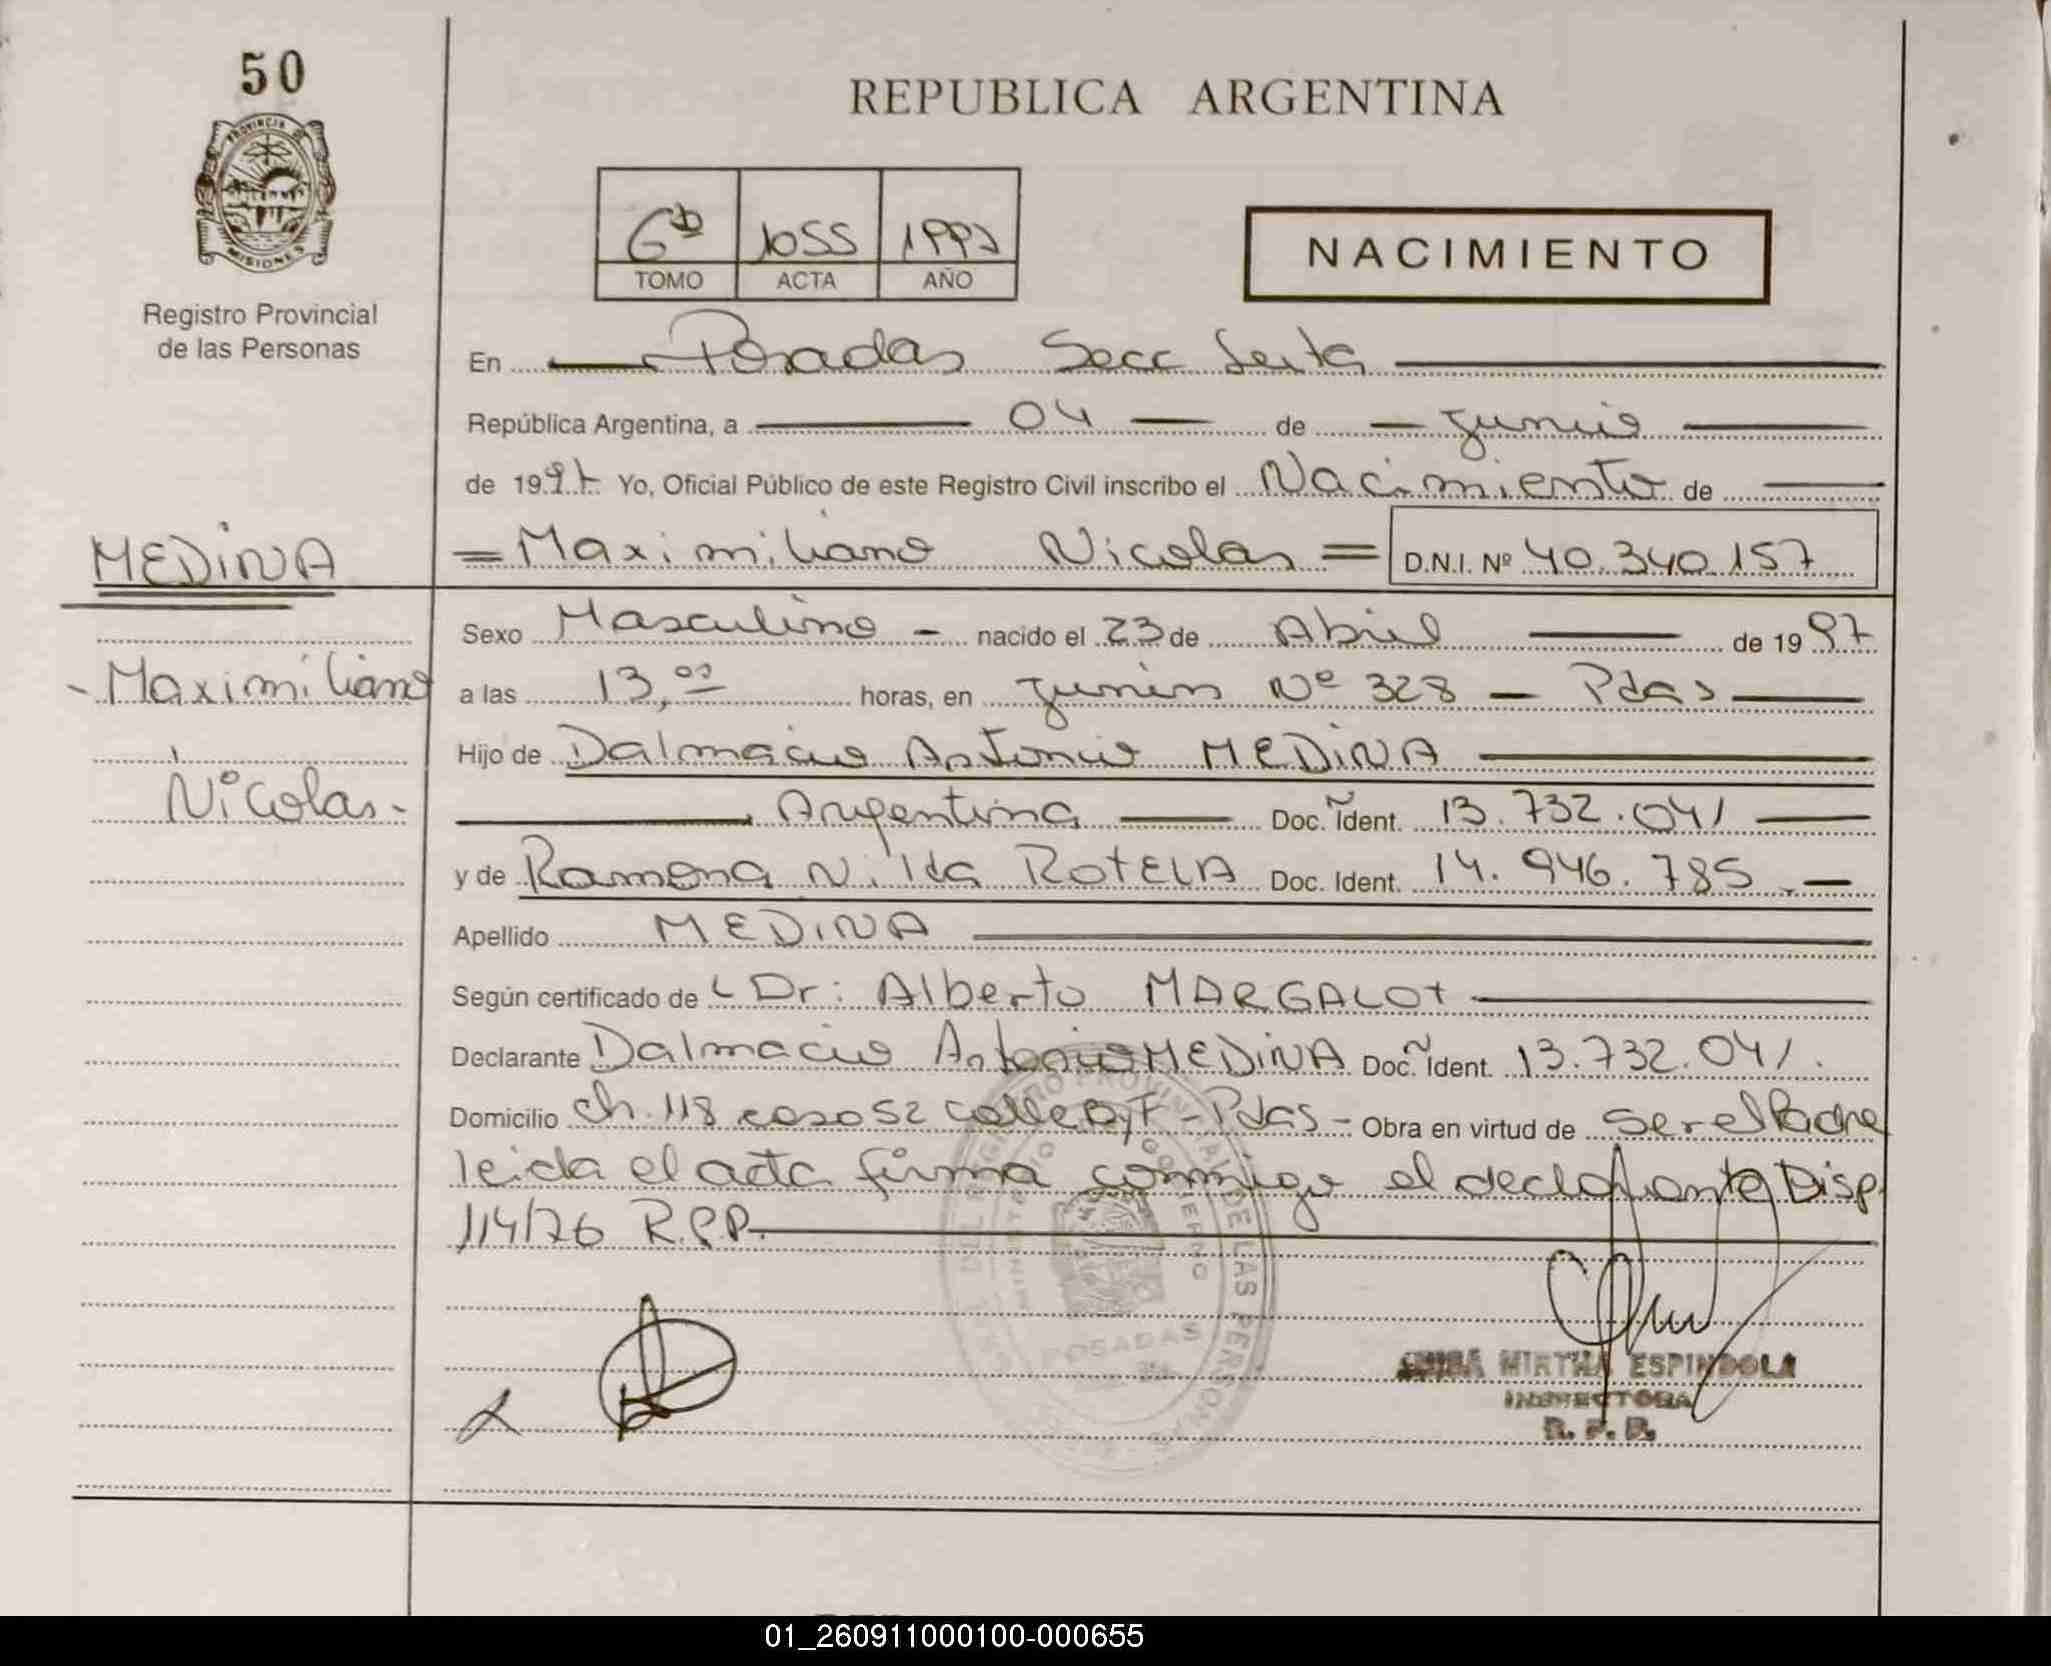 50
PROVINCIA DE
MISIONES
Registro Provincial
de las Personas
REPUBLICA ARGENTINA
6tb 1055 1997
TOMO ACTA AÑO
NACIMIENTO
En Posadas Secc Sexta
República Argentina, a 04 de Junio
de 1997 Yo, Oficial Público de este Registro Civil inscribo el Nacimiento de
MEDINA
= Maximiliano Nicolas = D.N.I. Nº 40.340.157
Sexo Masculino - nacido el 23 de Abril de 1997
- Maximiliano
Nicolas -
a las 13,00 horas, en Junin Nº 328 - Pdas
Hijo de Dalmacio Antonio MEDINA
Argentina Doc. Ident. 13.732.041
y de Ramona Nilda ROTELA Doc. Ident. 14.946.785.-
Apellido MEDINA
Según certificado de Dr: Alberto MARGALOT
Declarante Dalmacio Antonio MEDINA Doc. Ident. 13.732.041.
Domicilio Ch. 118 casa 52 calle B y F - Pdas - Obra en virtud de ser el Padre
leida el acta firma conmigo el declarante Disp.
114/76 R.P.P.
REGISTRO PROVINCIAL DE LAS PERSONAS
MINISTERIO GOBIERNO
POSADAS
MIRTHA ESPINDOLA
INSPECTORA
R. P. P.
01_260911000100-000655